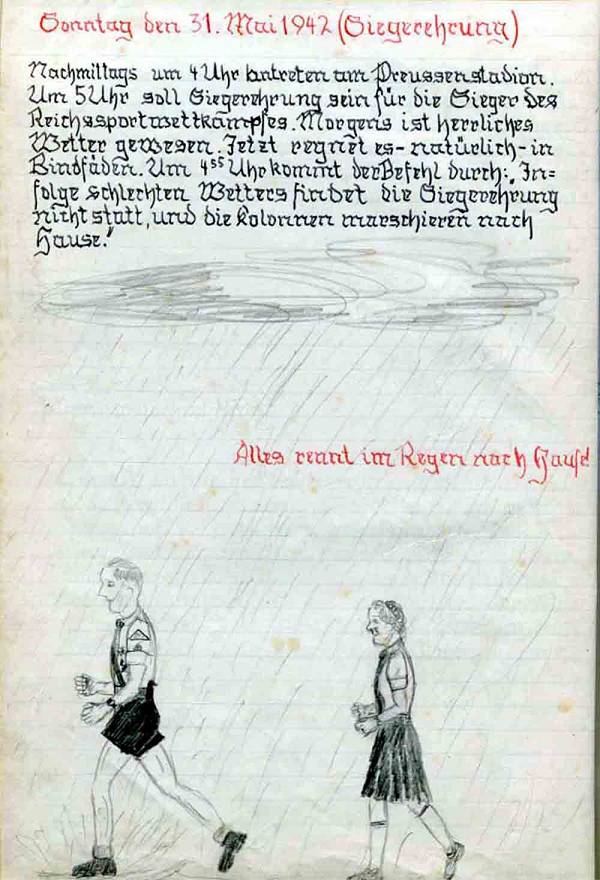 Sonntag den 31. Mai 1942 (Siegerehrung)
Nachmittags um 4 Uhr antreten am Preussenstadion.
Um 5 Uhr soll Siegerehrung sein für die Sieger des
Reichssportwettkampfes. Morgens ist herrliches
Wetter gewesen. Jetzt regnet es - natürlich - in
Bindfäden. Um 4⁵⁵ Uhr kommt der Befehl durch: „In=
folge schlechten Wetters findet die Siegerehrung
nicht statt, und die Kolonnen marschieren nach
Hause."
Alles rennt im Regen nach Hause